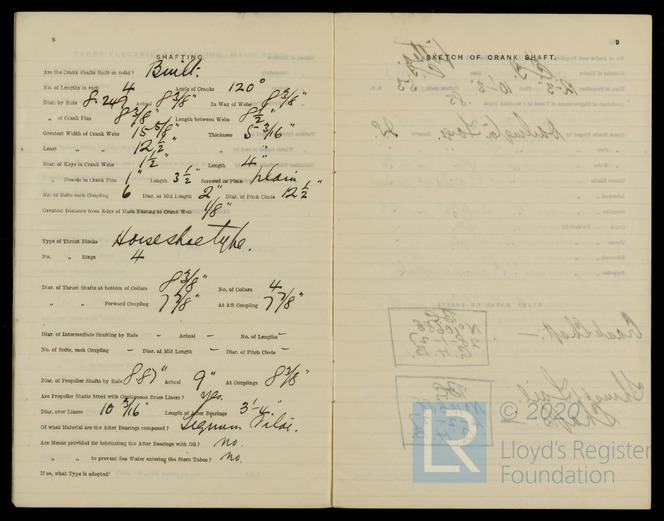 8
SHAFTING.
Are the Crank Shafts Built or Solid? Built.
No. of Lengths in each 4 Angle of Cranks 120°
Diar. by Rule 8.249 Actual 8 3/8" In Way of Webs 8 3/8"
" of Crank Pins 8 3/8" Length between Webs 8 1/2"
Greatest Width of Crank Webs 15 5/8" Thickness 5 3/16"
Least " " " 12 1/2" " "
Diar. of Keys in Crank Webs 1 1/2" Length 4"
" Dowels in Crank Pins 1" Length 3 1/2" Screwed or Plain Plain
No. of Bolts each Coupling 6 Diar. at Mid Length 2" Diar. of Pitch Circle 12 1/2"
Greatest Distance from Edge of Main Bearing to Crank Web 1/8"
Type of Thrust Blocks Horseshoe type.
No. " Rings 4
Diar. of Thrust Shafts at bottom of Collars 8 3/8" No. of Collars 4
" " Forward Coupling 7 7/8" At Aft Coupling 7 7/8"
Diar. of Intermediate Shafting by Rule - Actual - No. of Lengths -
No. of Bolts, each Coupling - Diar. at Mid Length - Diar. of Pitch Circle -
Diar. of Propeller Shafts by Rule 8.87" Actual 9" At Couplings 8 3/8"
Are Propeller Shafts fitted with Continuous Brass Liners? Yes.
Diar. over Liners 10 3/16" Length of After Bearings 3'-4"
Of what Material are the After Bearings composed? Lignum Vitae.
Are Means provided for lubricating the After Bearings with Oil? No.
" " to prevent Sea Water entering the Stern Tubes? No.
If so, what Type is adopted?
9
SKETCH OF CRANK SHAFT.
© 2020
LR
Lloyd's Register
Foundation